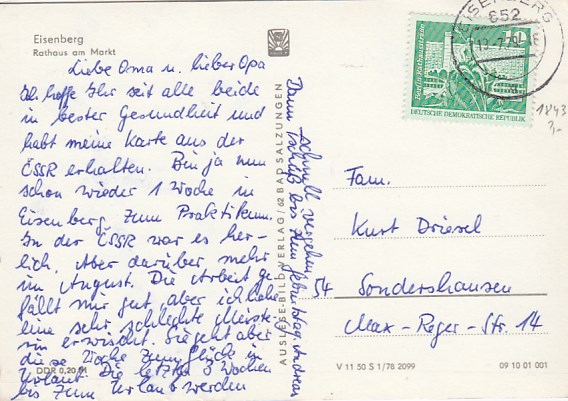 Eisenberg
Rathaus am Markt
Liebe Oma u. lieber Opa
Ich hoffe Ihr seit alle beide
in bester Gesundheit und
habt meine Karte aus der
ČSSR erhalten. Bin ja nun
schon wieder 1 Woche in
Eisenberg zum Praktikum.
In der ČSSR war es her-
lich. Aber darüber mehr
im August. Die Arbeit ge-
fällt mir gut, aber ich habe
eine sehr schlechte Meiste-
rin erwischt. Sie geht aber
diese Woche zum Glück in
Urlaub. Die letzten 3 Wochen
bis zum Urlaub werden
dann schnell vergehen.
Tschüß bis Geburtstag Andreas
DDR 0,20 M
AUSLESE-BILD-VERLAG / 62 BAD SALZUNGEN
EISENBERG
652
Berlin
10
DEUTSCHE DEMOKRATISCHE REPUBLIK
1843
Fam.
Kurt Driesel
54 Sondershausen
Max-Reger-Str. 14
V 11 50 S 1/78 2099
09 10 01 001